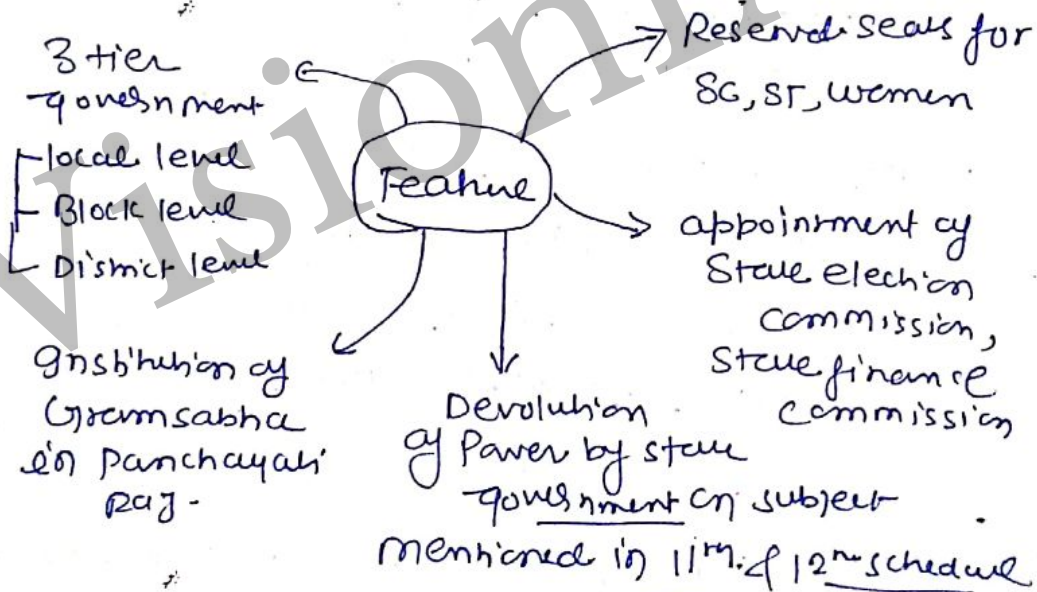 Feature
3 tier
government
local level
Block level
District level
Reserved seats for
SC, ST, women
appointment of
State election
commission,
State finance
commission
Institution of
Gramsabha
in Panchayati
Raj.
Devolution
of Power by state
government on subject
mentioned in 11th & 12th schedule
Vision